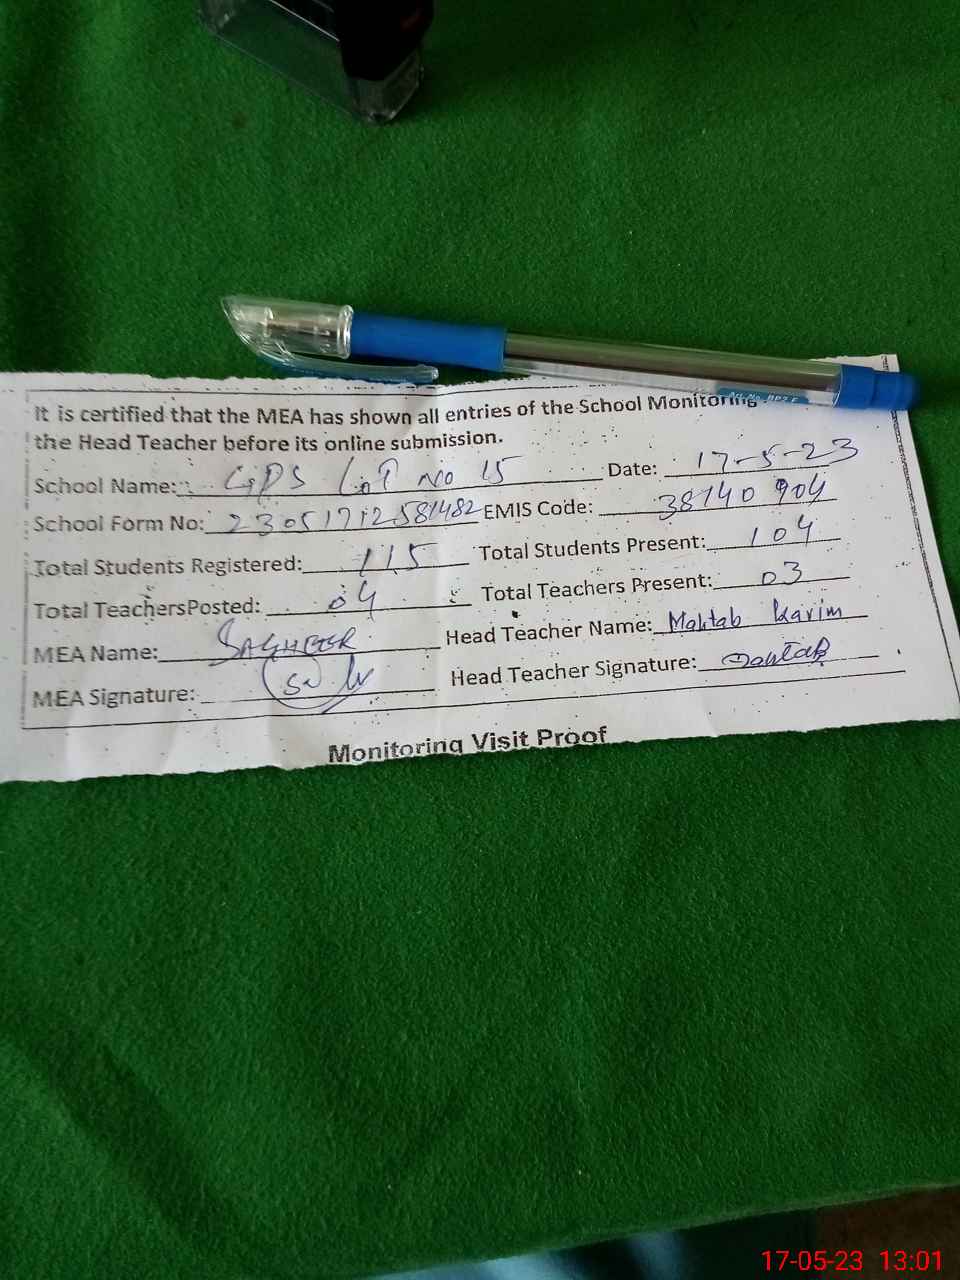 It is certified that the MEA has shown all entries of the School Monitoring
the Head Teacher before its online submission.
School Name: GPS LOT NO 15 Date: 17-5-23
School Form No: 23051712581482 EMIS Code: 38140904
Total Students Registered: 115 Total Students Present: 104
Total TeachersPosted: 04 Total Teachers Present: 03
MEA Name: SAGHEER Head Teacher Name: Mahtab Karim
MEA Signature: Head Teacher Signature: Mahtab
Monitoring Visit Proof
17-05-23 13:01